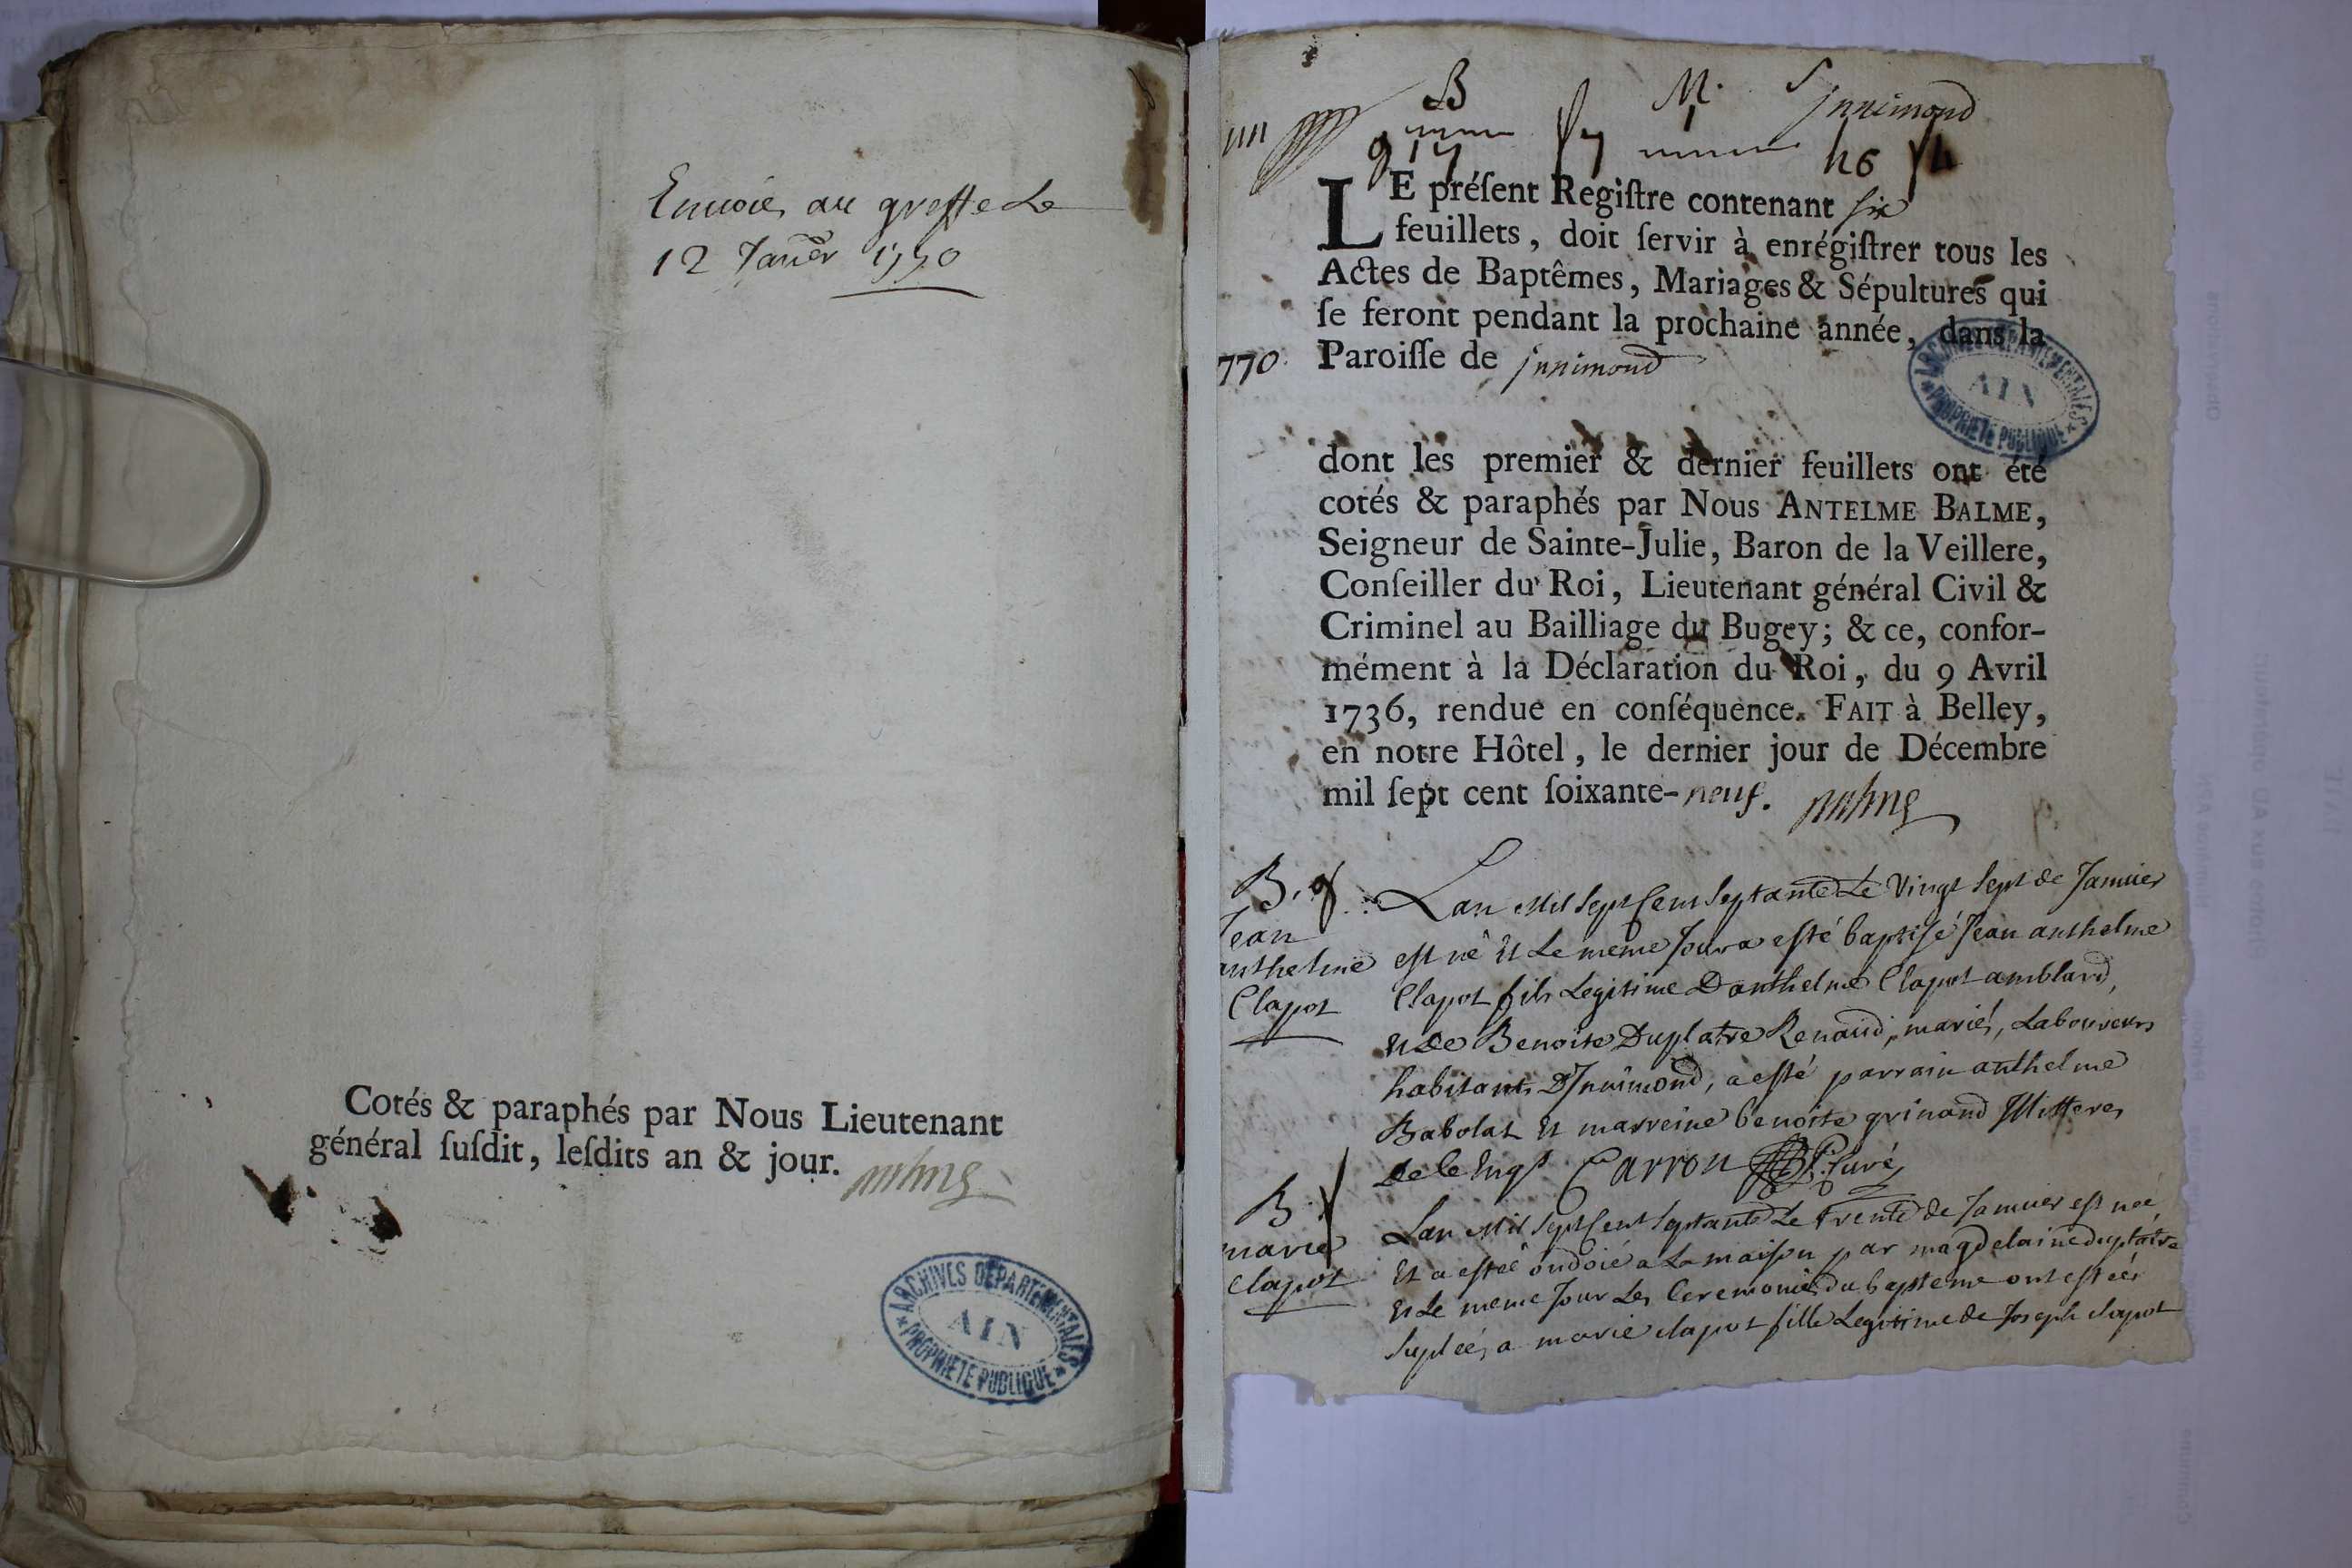 Envoié au greffe Le
12 Janer 1770
Cotés & paraphés par Nous Lieutenant
général ſuſdit, leſdits an & jour.
ARCHIVES DÉPARTEMENTALES
AIN
PROPRIÉTÉ PUBLIQUE
B M. S Jnnimond
LE préſent Regiſtre contenant six
feuillets, doit ſervir à enrégiſtrer tous les
Actes de Baptêmes, Mariages & Sépultures qui
ſe feront pendant la prochaine année, dans la
770. Paroiſſe de jnnimond
ARCHIVES DÉPARTEMENTALES
AIN
PROPRIÉTÉ PUBLIQUE
dont les premier & dernier feuillets ont été
cotés & paraphés par Nous ANTELME BALME,
Seigneur de Sainte-Julie, Baron de la Veillere,
Conſeiller du Roi, Lieutenant général Civil &
Criminel au Bailliage du Bugey; & ce, confor-
mément à la Déclaration du Roi, du 9 Avril
1736, rendue en conſéquence. FAIT à Belley,
en notre Hôtel, le dernier jour de Décembre
mil ſept cent ſoixante-neuf.
B.
Jean
anthelme
Clapot
Lan Mil Sept Cent Septante Le Vingt Sept de Januier
est né Et Le meme Jour a esté baptisé Jean anthelme
Clapot fils Legitime Danthelme Clapot amblard,
Et De Benoite Duplatre Renaud, mariés, Laboureurs
habitants D'Jnnimond, a esté parrain anthelme
Babolat Et marreine benoite grinand Jllitteres
De le Enqs Carron Curé
B.
marie
Clapot
Lan Mil Sept Cent Septante Le trente de Januier est neé,
Et a esteé ondoié a La maison par magdelaine duplatre
Et Le meme Jour Les Ceremonies du bapteme ont esteés
Supleés a marie clapot fille Legitime de Joseph clapot